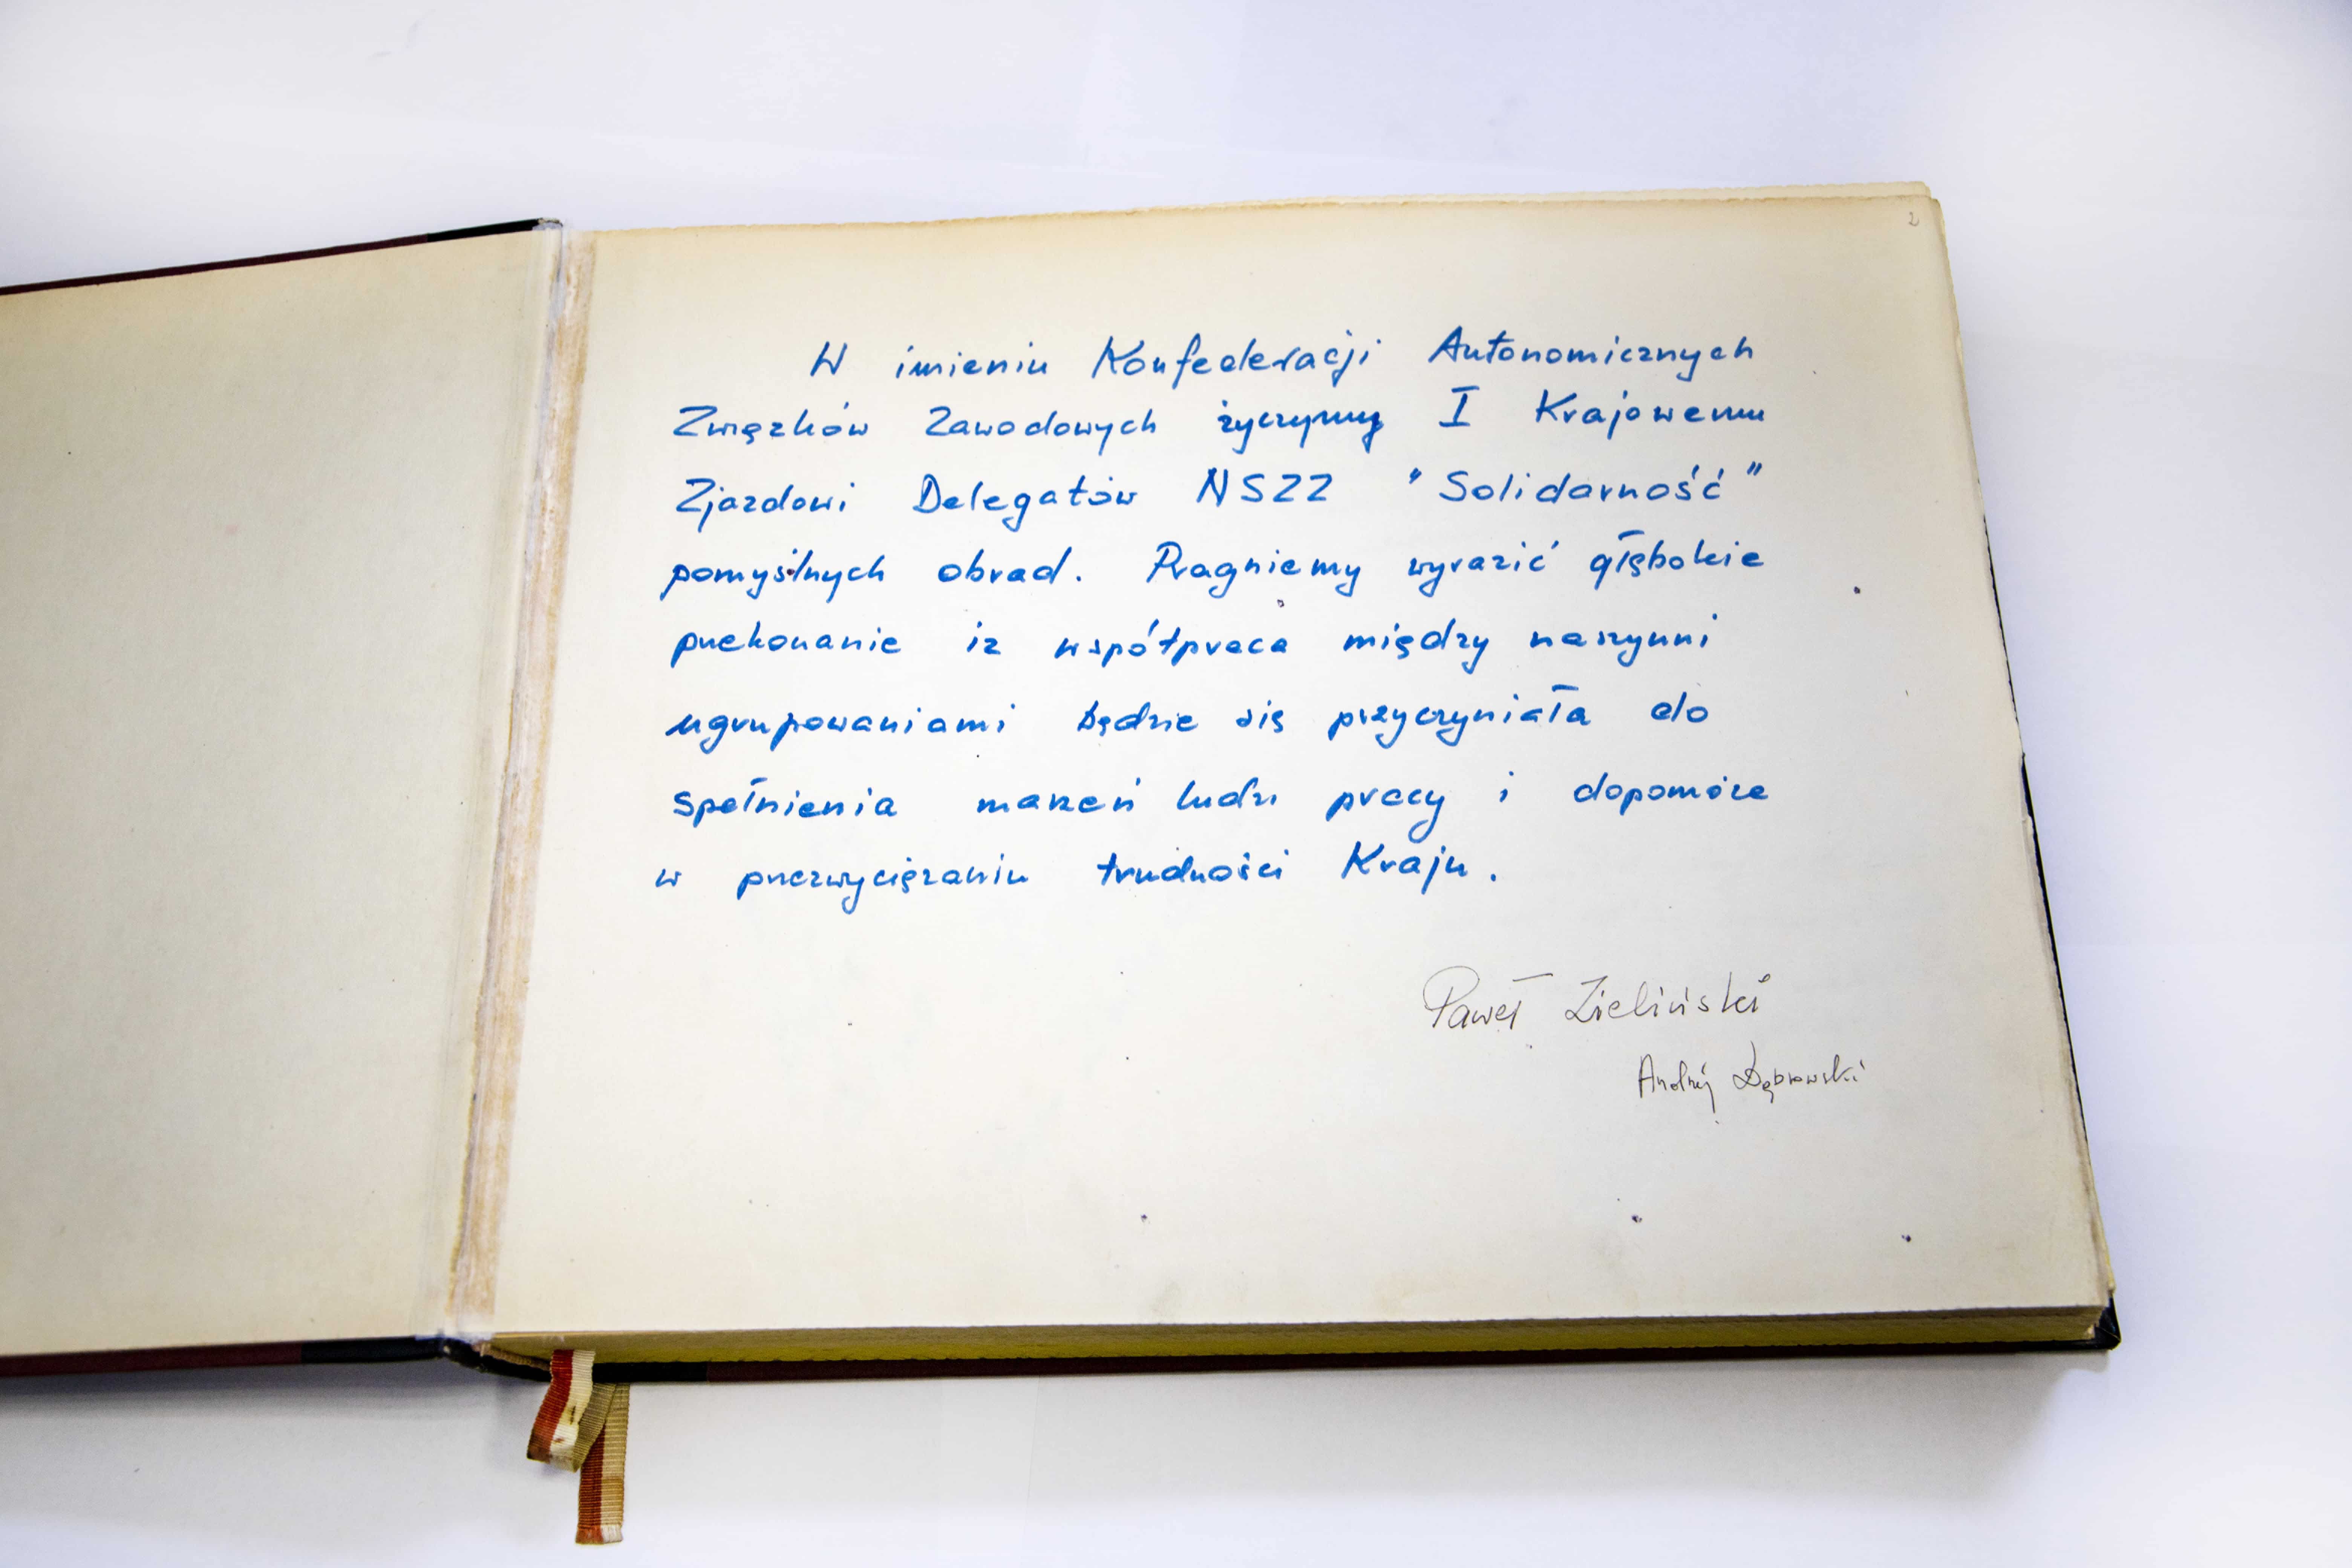 2
W imieniu Konfederacji Autonomicznych
Związków Zawodowych życzymy I Krajowemu
Zjazdowi Delegatów NSZZ "Solidarność"
pomyślnych obrad. Pragniemy wyrazić głębokie
przekonanie iż współpraca między naszymi
ugrupowaniami będzie się przyczyniała do
spełnienia marzeń ludzi pracy i dopomoże
w przezwyciężaniu trudności Kraju.
Paweł Zieliński
Andrzej Dąbrowski